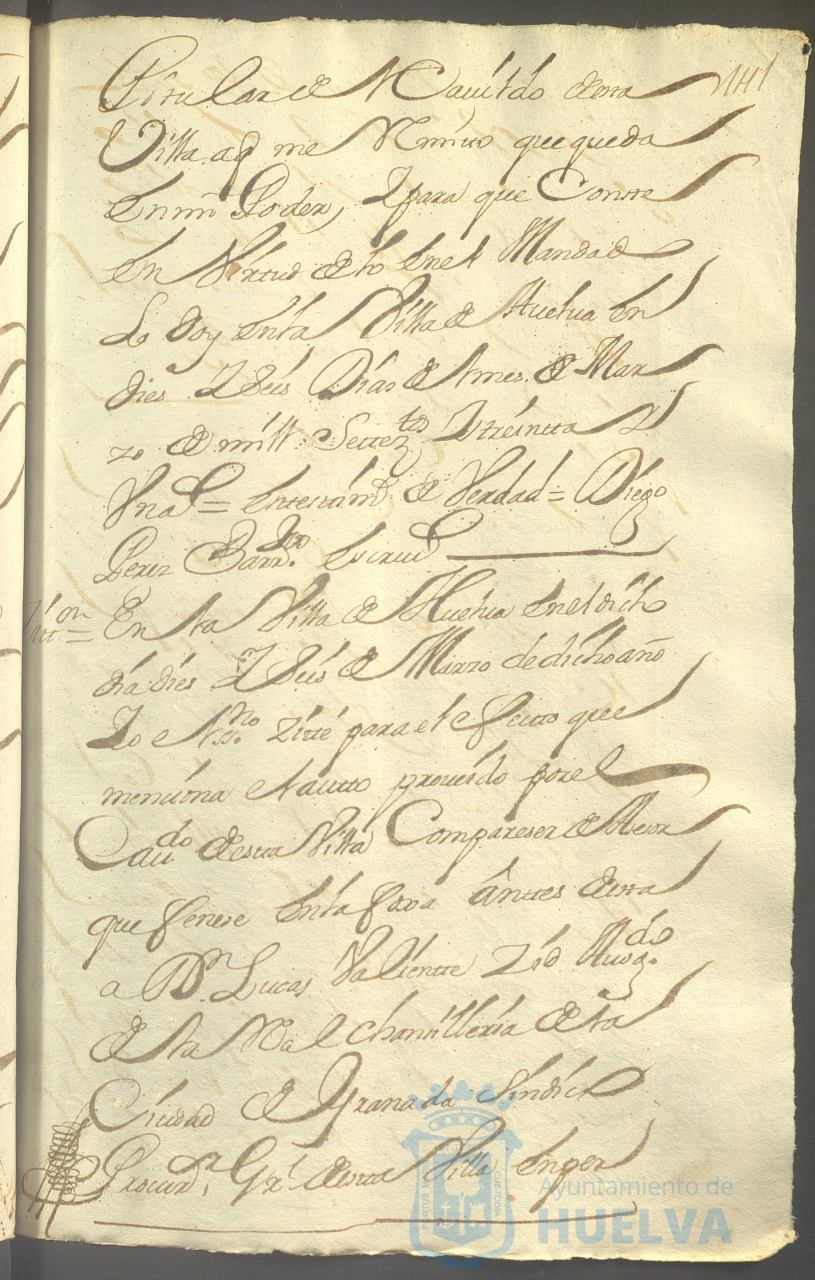 141
Pitular de el Cavildo desta
Villa aq me Remito que queda
En mi Poder, Y para que Conste
En Virtud de lo En el Mandado
Lo doy En la Villa de Huelva En
dies Y Seis Dias de el mes de Mar
zo de mill Settez.tos Y treintta Y
Una = En testim.o de Verdad = Diego
Perez Barr.o Escriu.o
Zitt.on = En la Villa de Huelva En el dicho
dia dies Y Seis de Marzo de dicho año
Yo el Ess.no Zité para el efecto que
menciona el autto proveido por el
Cau.do desta Villa Compareser
que fenese En la foxa anttes desta
a D.n Lucas Valientte Zid Auog.do
de la Real Chansilleria de la
Ciudad de Granada Sindico
Procur.dr Gr.l desta Villa En per
Ayuntamiento de
HUELVA